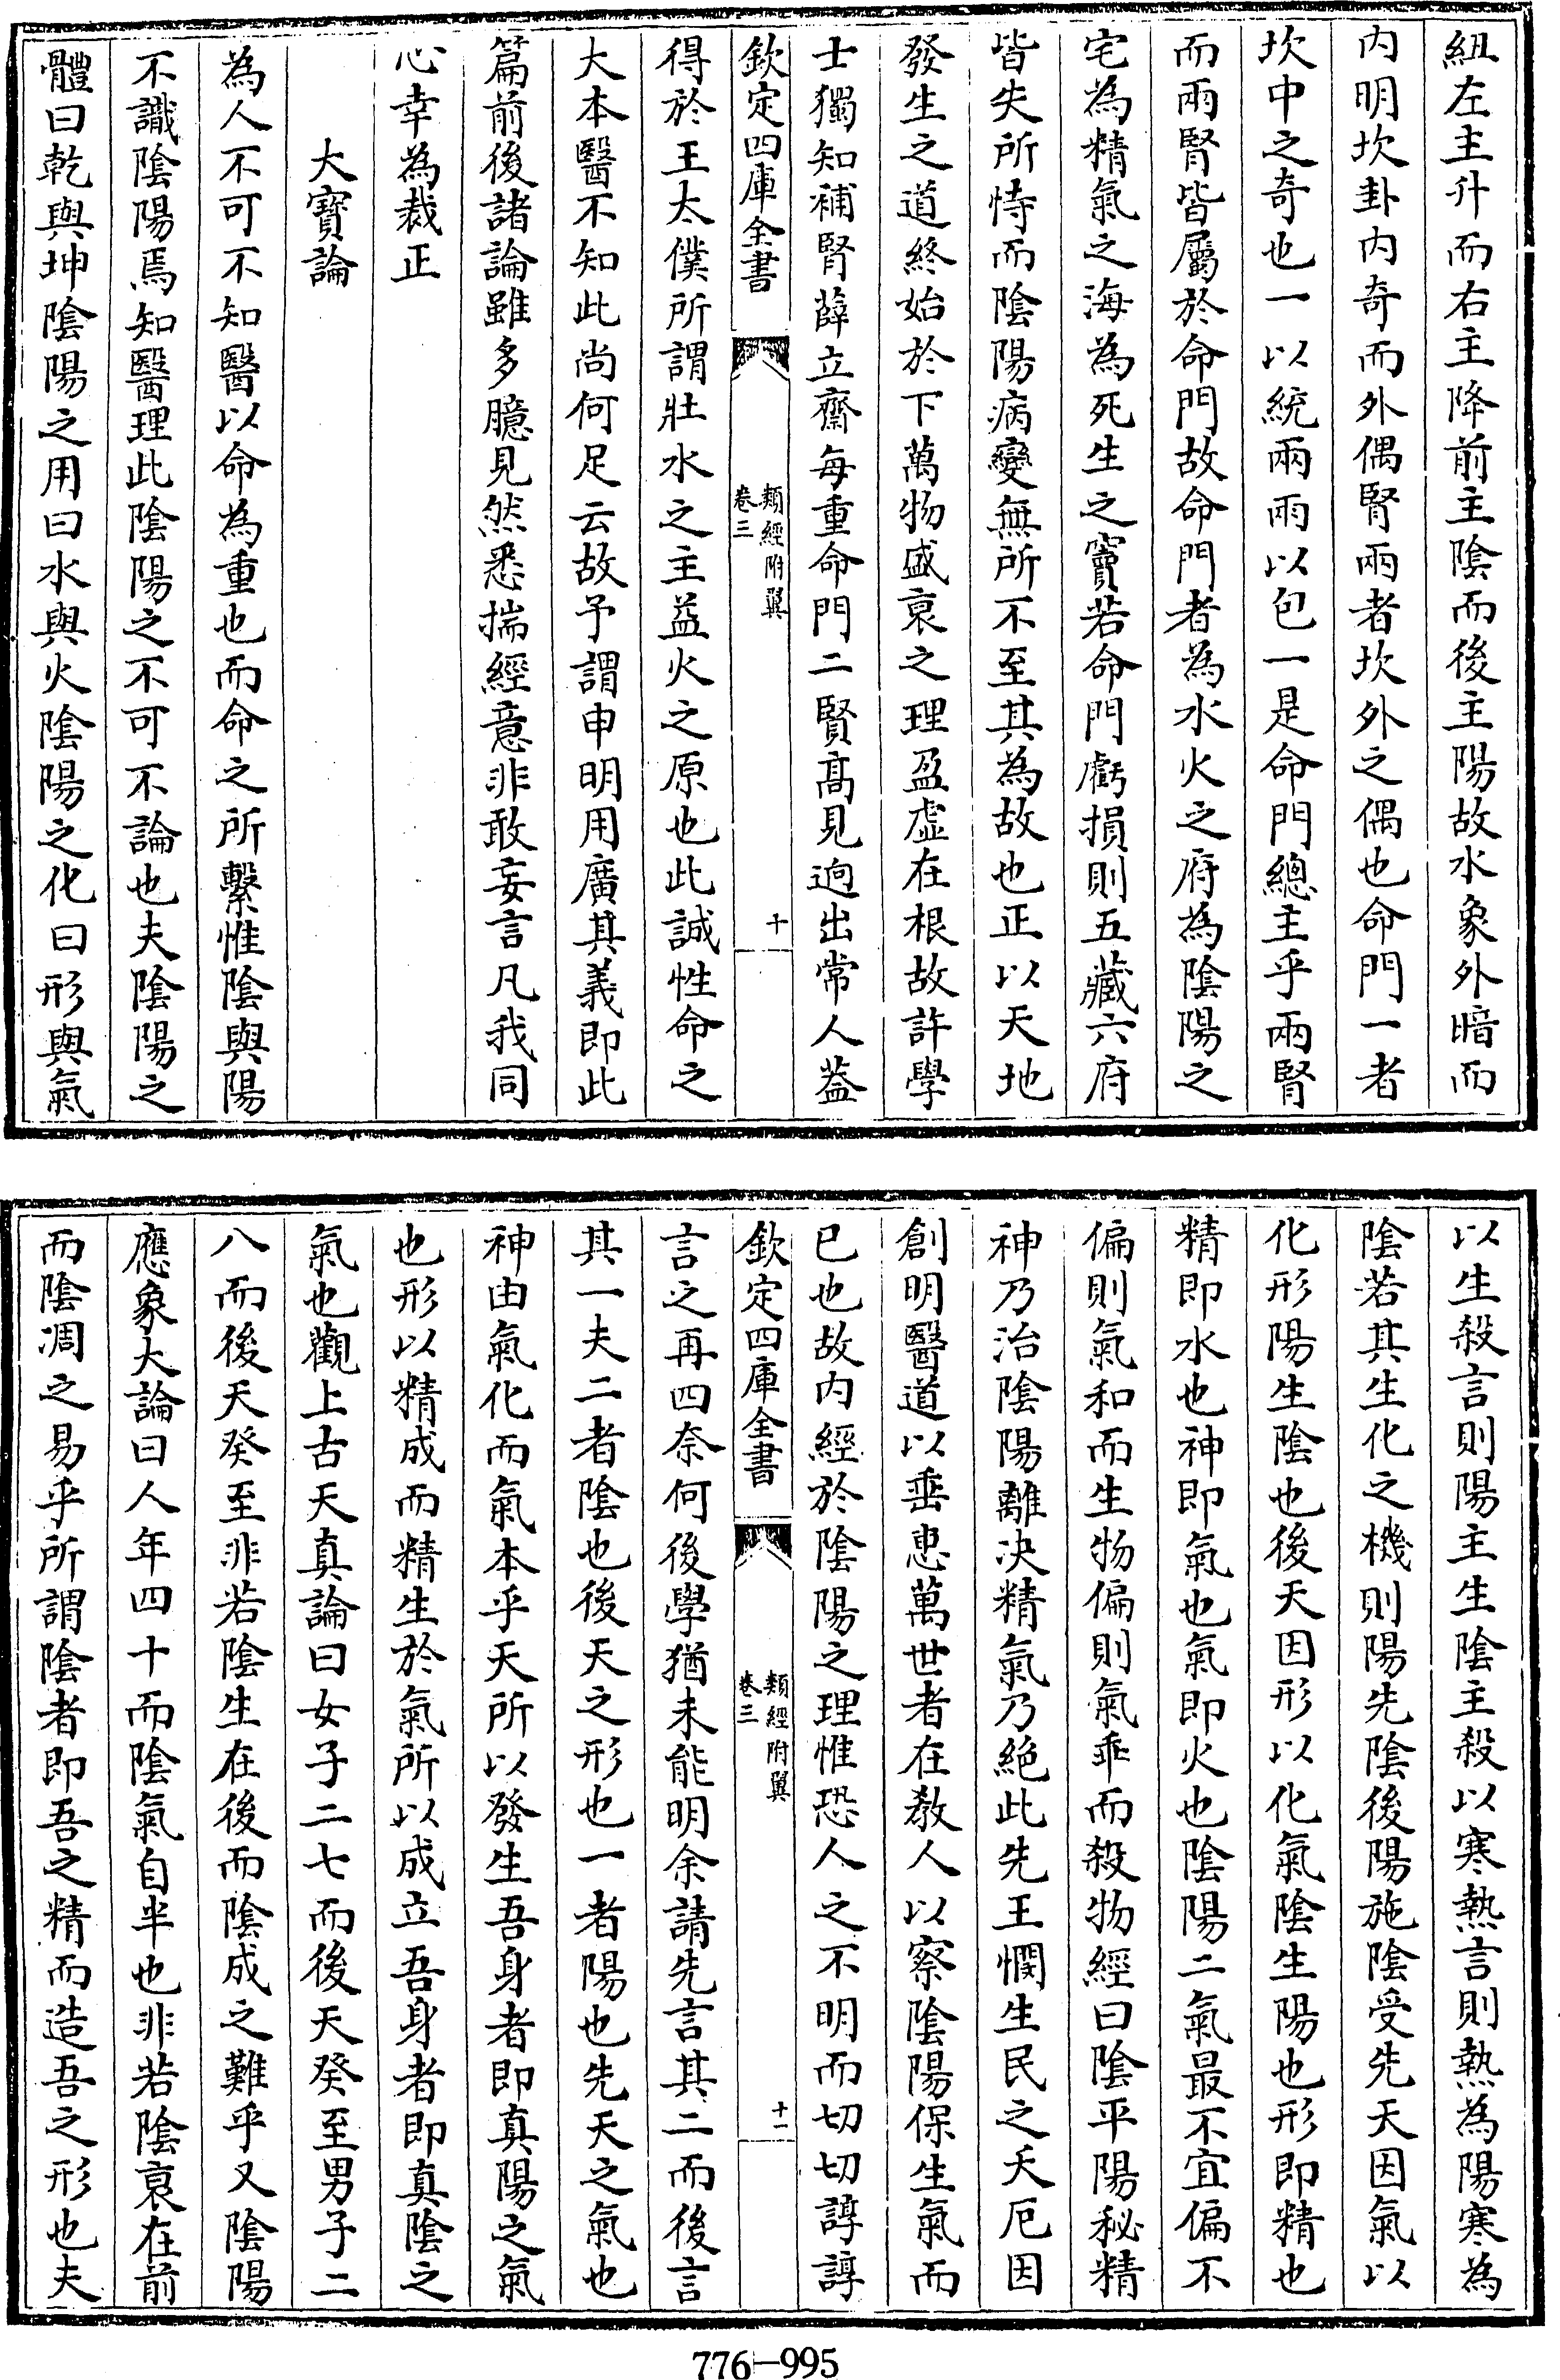 紐左主升而右主降前主陰而後主陽故水象外暗而
内明坎卦内奇而外偶腎兩者坎外之偶也命門一者
坎中之奇也一以統兩兩以包一是命門總主乎兩腎
而兩腎皆屬於命門故命門者為水火之府為陰陽之
宅為精氣之海為死生之竇若命門虧損則五藏六府
皆失所恃而陰陽病變無所不至其為故也正以天地
發生之道終始於下萬物盛衰之理盈虛在根故許學
士獨知補腎薛立齋每重命門二賢高見迥出常人葢
欽定四庫全書
類經附翼
卷三
十
得於王太僕所謂壯水之主益火之原也此誠性命之
大本醫不知此尚何足云故予謂申明用廣其義即此
篇前後諸論雖多臆見然悉揣經意非敢妄言凡我同
心幸為裁正
大寶論
為人不可不知醫以命為重也而命之所繫惟陰與陽
不識陰陽焉知醫理此陰陽之不可不論也夫陰陽之
體曰乾與坤陰陽之用曰水與火陰陽之化曰形與氣
以生殺言則陽主生陰主殺以寒熱言則熱為陽寒為
陰若其生化之機則陽先陰後陽施陰受先天因氣以
化形陽生陰也後天因形以化氣陰生陽也形即精也
精即水也神即氣也氣即火也陰陽二氣最不宜偏不
偏則氣和而生物偏則氣乖而殺物經曰陰平陽秘精
神乃治陰陽離決精氣乃絕此先王憫生民之夭厄因
創明醫道以垂惠萬世者在教人以察陰陽保生氣而
已也故内經於陰陽之理惟恐人之不明而切切諄諄
欽定四庫全書
類經附翼
卷三
十一
言之再四奈何後學猶未能明余請先言其二而後言
其一夫二者陰也後天之形也一者陽也先天之氣也
神由氣化而氣本乎天所以發生吾身者即真陽之氣
也形以精成而精生於氣所以成立吾身者即真陰之
氣也觀上古天真論曰女子二七而後天癸至男子二
八而後天癸至非若陰生在後而陰成之難乎又陰陽
應象大論曰人年四十而陰氣自半也非若陰衰在前
而陰凋之易乎所謂陰者即吾之精而造吾之形也夫
776-995